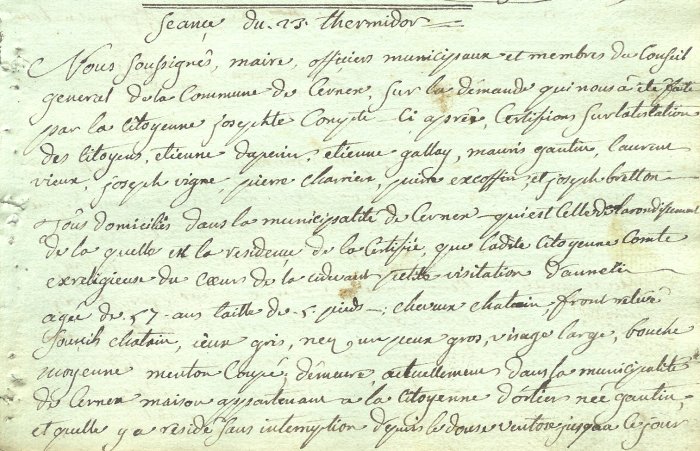 Seance du 23 thermidor
Nous soussignés, maire, officiers municipaux et membres du Conseil
general de la Commune de Cernex, sur la demande qui nous à été faite
par la Citoyenne josephte Compte Ci après, Certifions sur lattestation
des Citoyens, etienne duperier, etienne gallay, mauris gautin, laurent
vieux, joseph vigne, pierre charrier, pierre excoffier, et joseph bretton
Tous domiciliés dans la municipalité de Cernex qui est Celle de larondissement
de la quelle est la residence de la Certifié, que ladite Citoyenne Comte
exreligieuse du Cœurs de la cidevant petitte visitation dannecier
agée de 57 ans taille de 5 pieds chevux chatain, front relevé
Sourcils chatain, ieux gris, nez un peux gros, visage large, bouche
moyenne menton Coupé; demeure, actuellement dans la municipalité
de Cernex maison appartenant a la Citoyenne d'orlier née gautin,
et quelle y a residé sans interruption depuis le douse ventose jusqua Ce jour